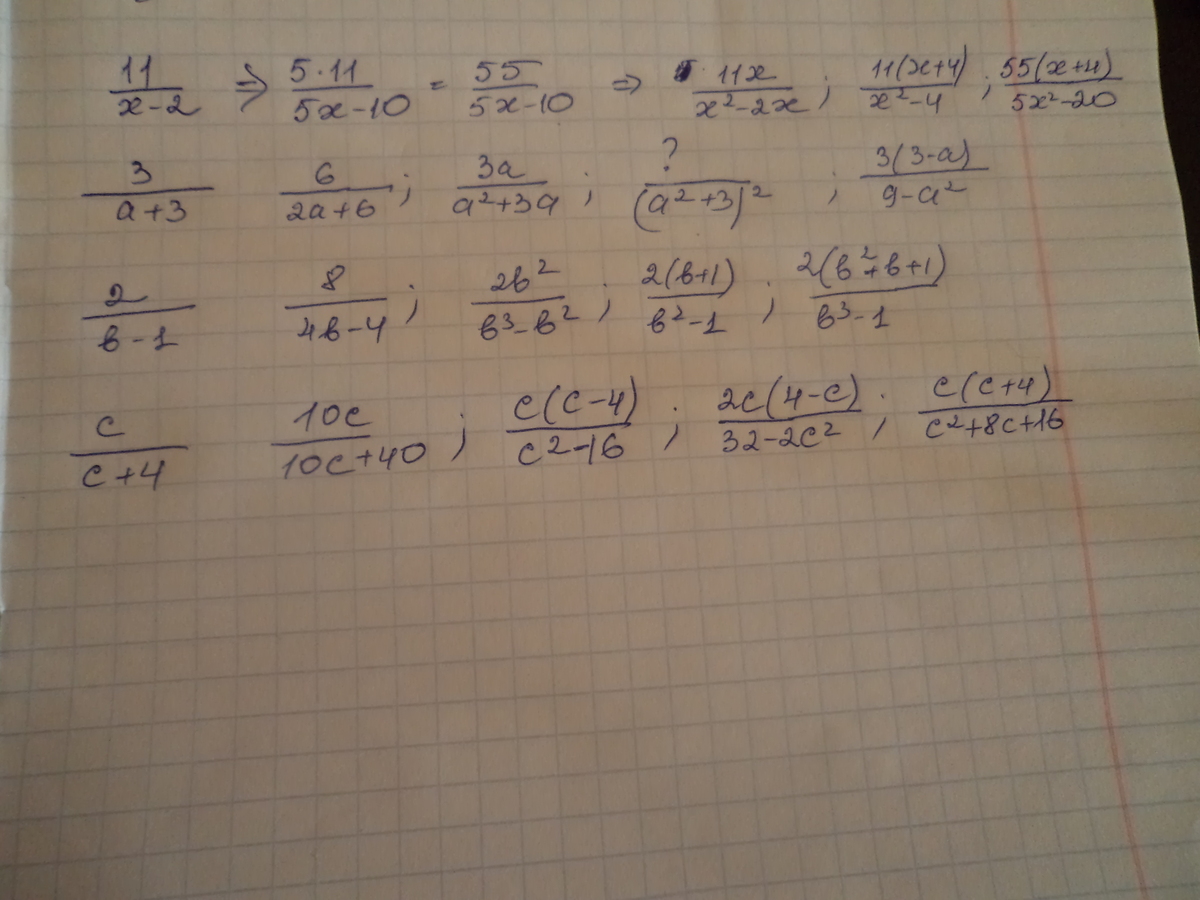 11/(x-2) ⇒ (5·11)/(5x-10) = 55/(5x-10) ⇒ 11x/(x²-2x) ; 11(x+4)/(x²-4) ; 55(x+4)/(5x²-20)
3/(a+3) 6/(2a+6) ; 3a/(a²+3a) ; ?/(a²+3)² ; 3(3-a)/(9-a²)
2/(в-1) 8/(4в-4) ; 2в²/(в³-в²) ; 2(в+1)/(в²-1) ; 2(в²+в+1)/(в³-1)
c/(c+4) 10c/(10c+40) ; c(c-4)/(c²-16) ; 2c(4-c)/(32-2c²) ; c(c+4)/(c²+8c+16)